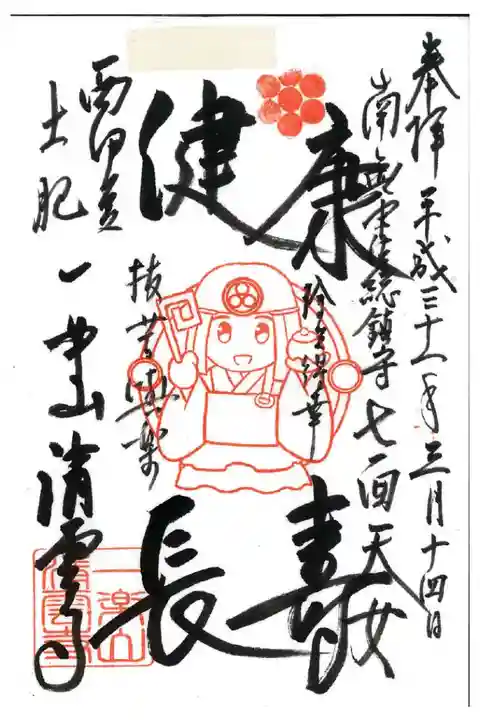 奉拝 平成三十一年三月十四日
南無末法総鎮守七面天女
健康
長寿
抜苦與楽
西伊豆
土肥
一楽山清雲寺